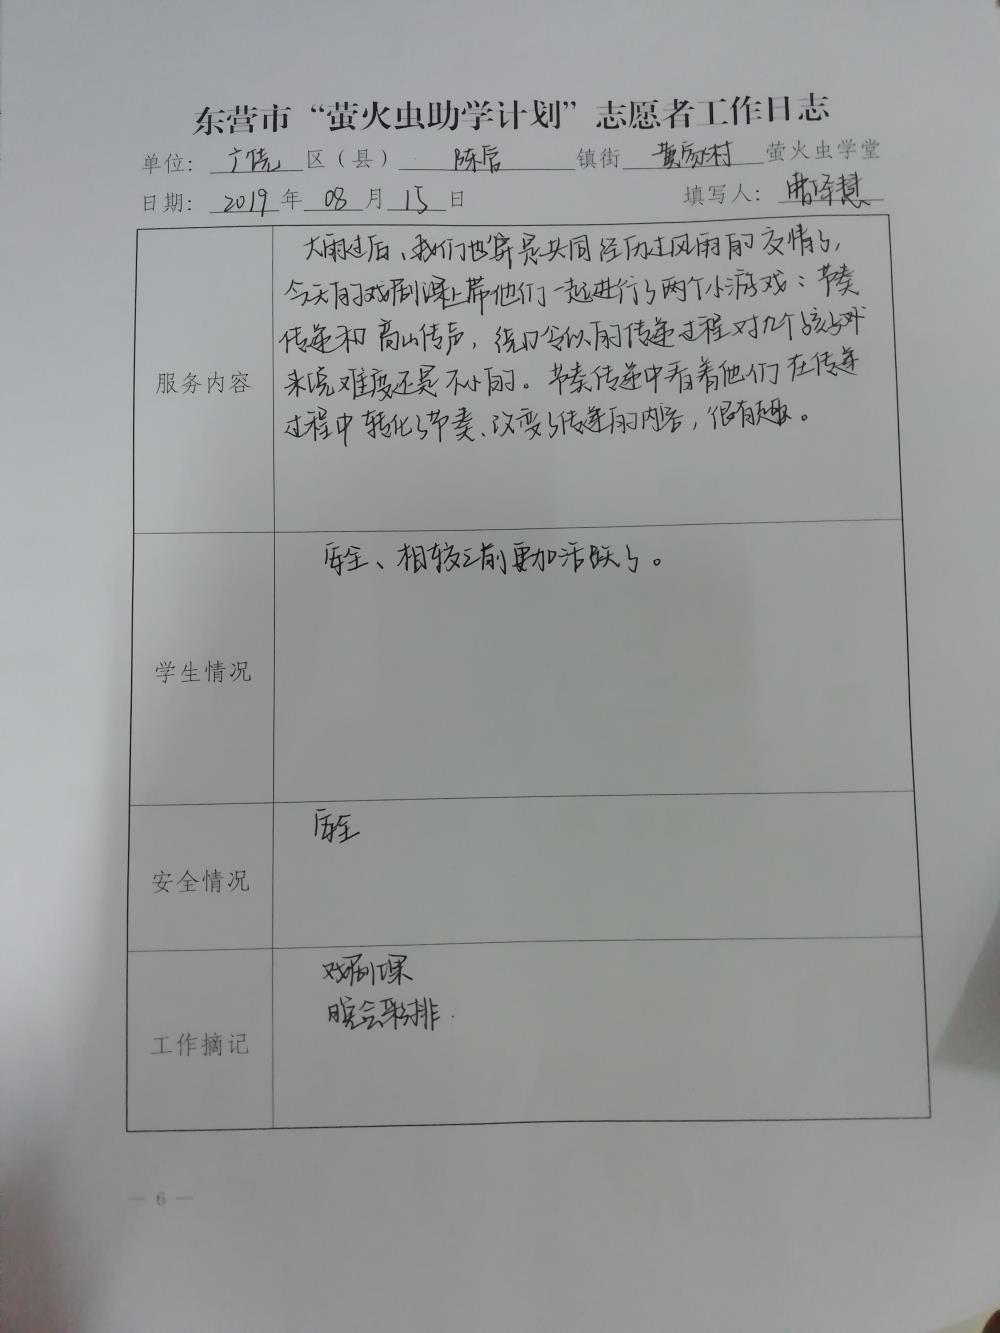 东营市“萤火虫助学计划”志愿者工作日志
单位: 广饶 区（县） 陈官 镇街 黄家村 萤火虫学堂
日期: 2019 年 08 月 15 日 填写人: 曹泽慧
服务内容
大雨过后、我们也算是共同经历过风雨的友情了,
今天的戏剧课上带他们一起进行了两个小游戏：节奏
传递和高山传声，绕口令似的传递过程对九个孩子
来说难度还是不小的。节奏传递中看着他们在传递
过程中转化了节奏、改变了传递的内容，很有趣。
学生情况
安全、相较之前更加活跃了。
安全情况
安全
工作摘记
戏剧课
晚会彩排.
— 6 —